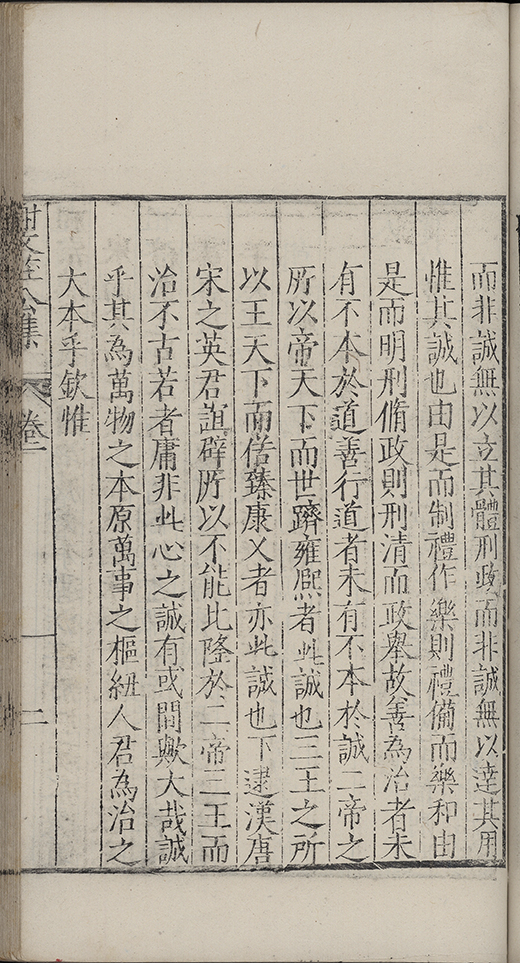 而非誠無以立其體刑政而非誠無以達其用
惟其誠也由是而制禮作樂則禮備而樂和由
是而明刑脩政則刑清而政舉故善為治者未
有不本於道善行道者未有不本於誠二帝之
所以帝天下而世躋雍熈者此誠也三王之所
以王天下而偕臻康乂者亦此誠也下逮漢唐
宋之英君誼辟所以不能比隆於二帝三王而
治不古若者庸非此心之誠有或間歟大哉誠
乎其為萬物之本原萬事之樞紐人君為治之
大本乎欽惟
謝文荘公集 卷一 二